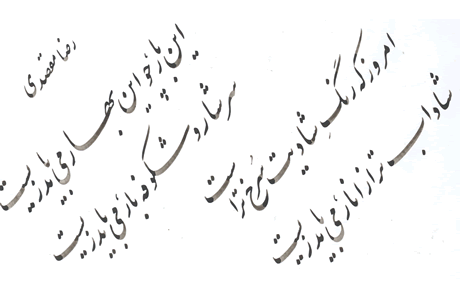 امروز که رنگ شادیت سرخ تر است
شاداب تر از انار می باید زیست
این بار چو این بهار می باید زیست
سرشار و شکوفه بار می باید زیست
رضا مقصدی